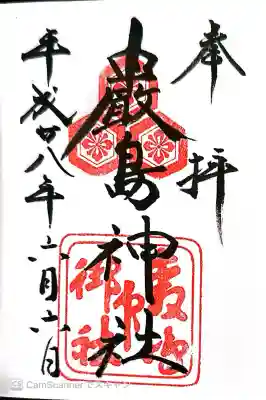 奉拝
厳島神社
平成廿八年六月六日
CamScanner でスキャン